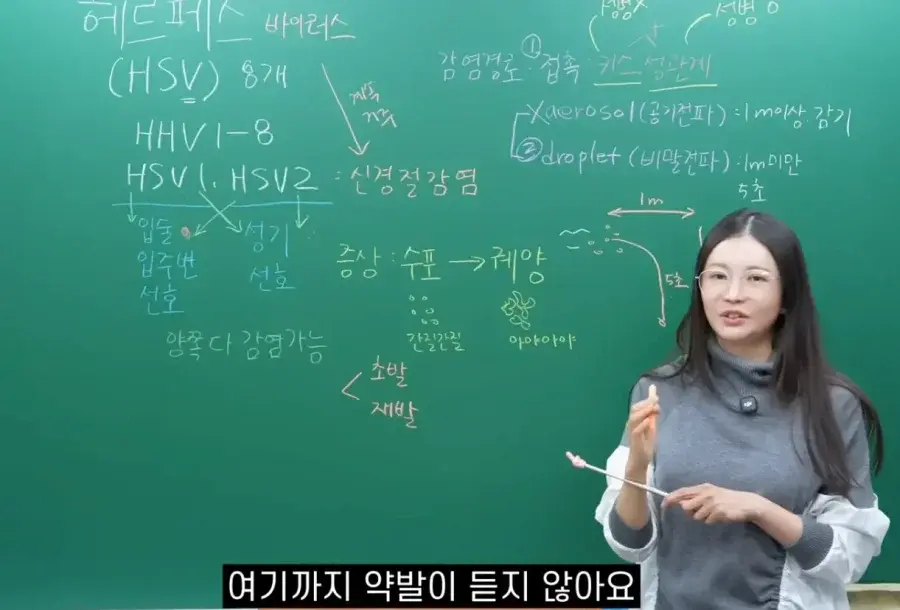 헤르페스 바이러스
(HSV) 8개
HHV 1-8
HSV1. HSV2 : 신경절감염
입술
입주변
선호
성기
선호
양쪽 다 감염가능
성병X
성병 O
감염경로 ① 접촉 키스 성관계
X aerosol (공기전파) : 1m이상. 감기
② droplet (비말전파) : 1m미만
5초
1m
5초
증상 : 수포 → 궤양
간질간질
아야아야
초발
재발
여기까지 약발이 듣지 않아요